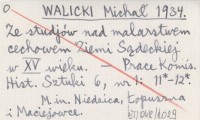 WALICKI Michał 1934.
Ze studjów nad malarstwem
cechowem Ziemi Sądeckiej
w XV wieku. — Prace Komis.
Hist. Sztuki 6, nr 1: 11*-12*.
M. in. Niedzica, Łopuszna
i Maciejowce.